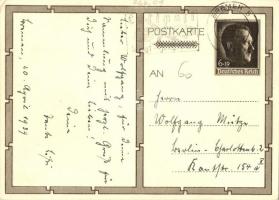 BREMEN
POSTKARTE
6+19
Deutsches Reich
AN
60
Herrn
Wolfgang Mütze
Berlin-Charlottenb. 2
Kantstr. 154a
Lieber Wolfgang, für Deine
Sammlung mit herzl. Gruß für
Dich und Deine Lieben!
Deine
Tante
Bremen, 20. April 1939